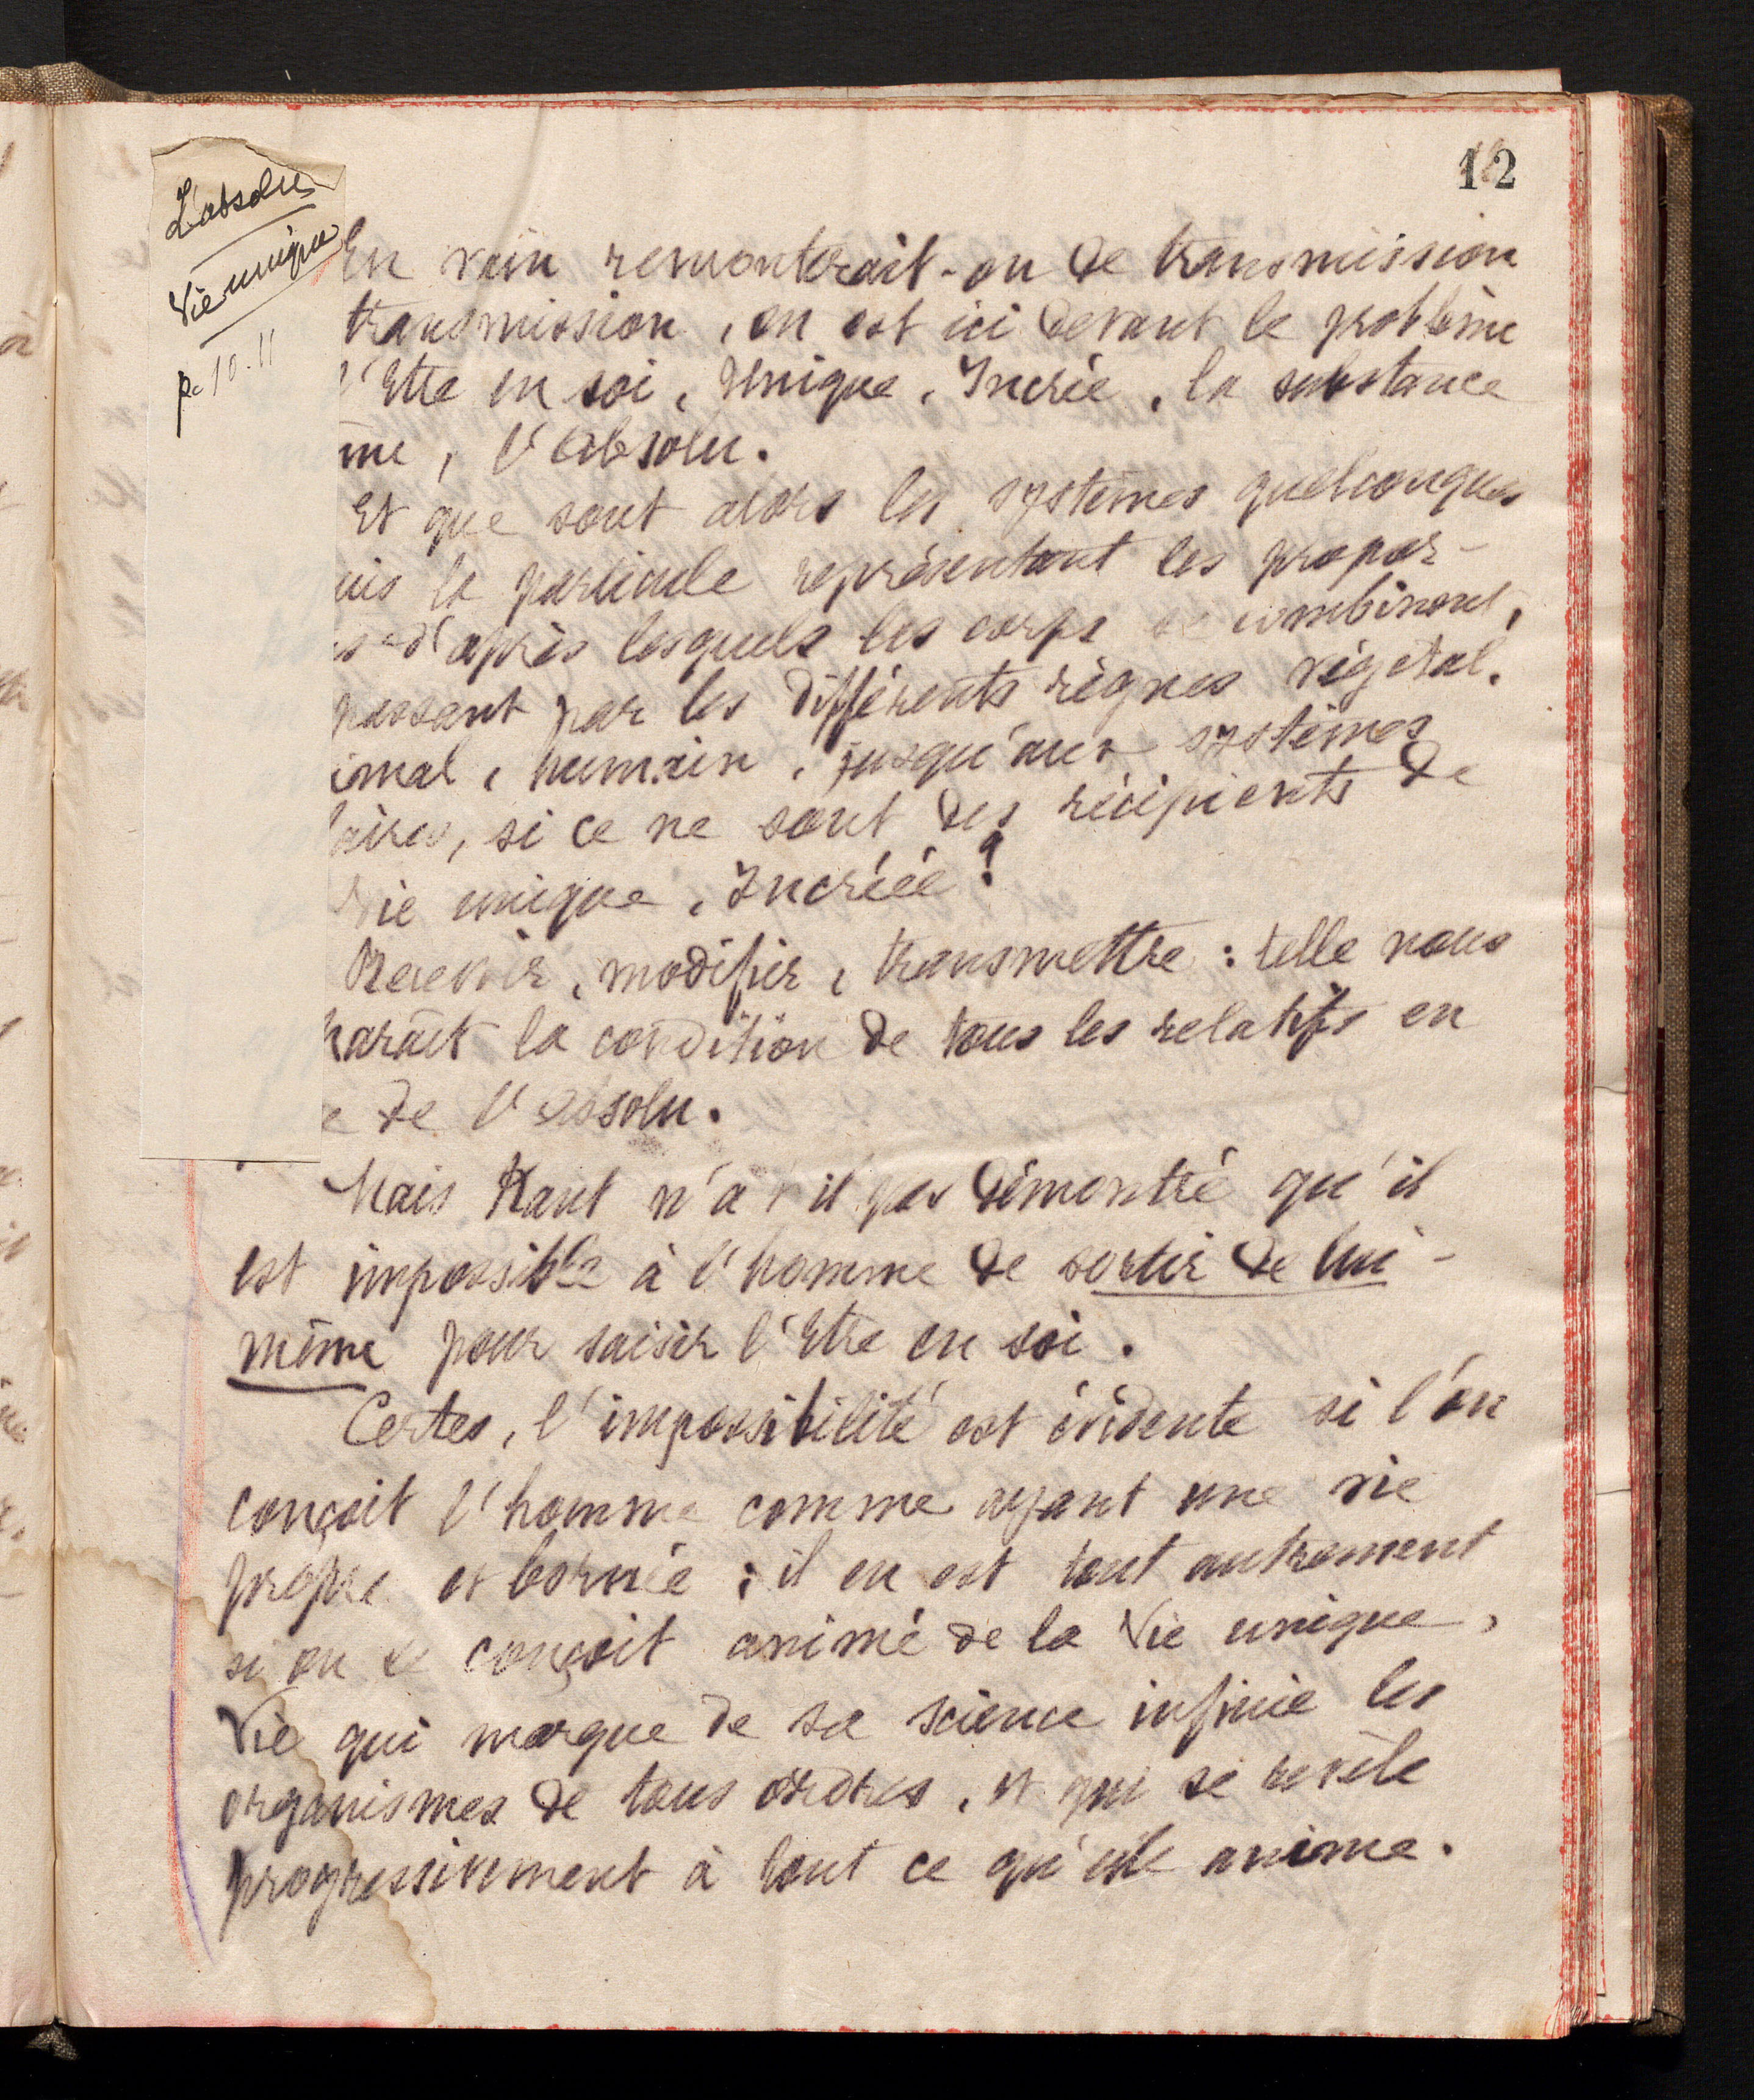 12
L'absolu
Vie unique
p. 10.11
En vain remonterait-on de transmission
transmission, on est ici devant le problème
l'Etre en soi, Unique, Incréé, la substance
me, l'Absolu.
Et que sont alors les systèmes quelconques
uis la particule représentant les propor-
s d'après lesquels les corps se combinent,
passant par les différents règnes végétal,
imal, humain, jusqu'aux systèmes
laires, si ce ne sont des récipients de
Vie unique, Incréée ?
Recevoir, modifier, transmettre : telle nous
paraît la condition de tous les relatifs en
e de l'Absolu.
Mais Kant n'a t'il pas démontré qu'il
est impossible à l'homme de sortir de lui-
même pour saisir l'Etre en soi.
Certes, l'impossibilité est évidente si l'on
conçoit l'homme comme ayant une vie
propre et bornée ; il en est tout autrement
si on le conçoit animé de la Vie unique,
Vie qui marque de sa science infinie les
organismes de tous ordres, et qui se révèle
progressivement à tout ce qu'elle anime.